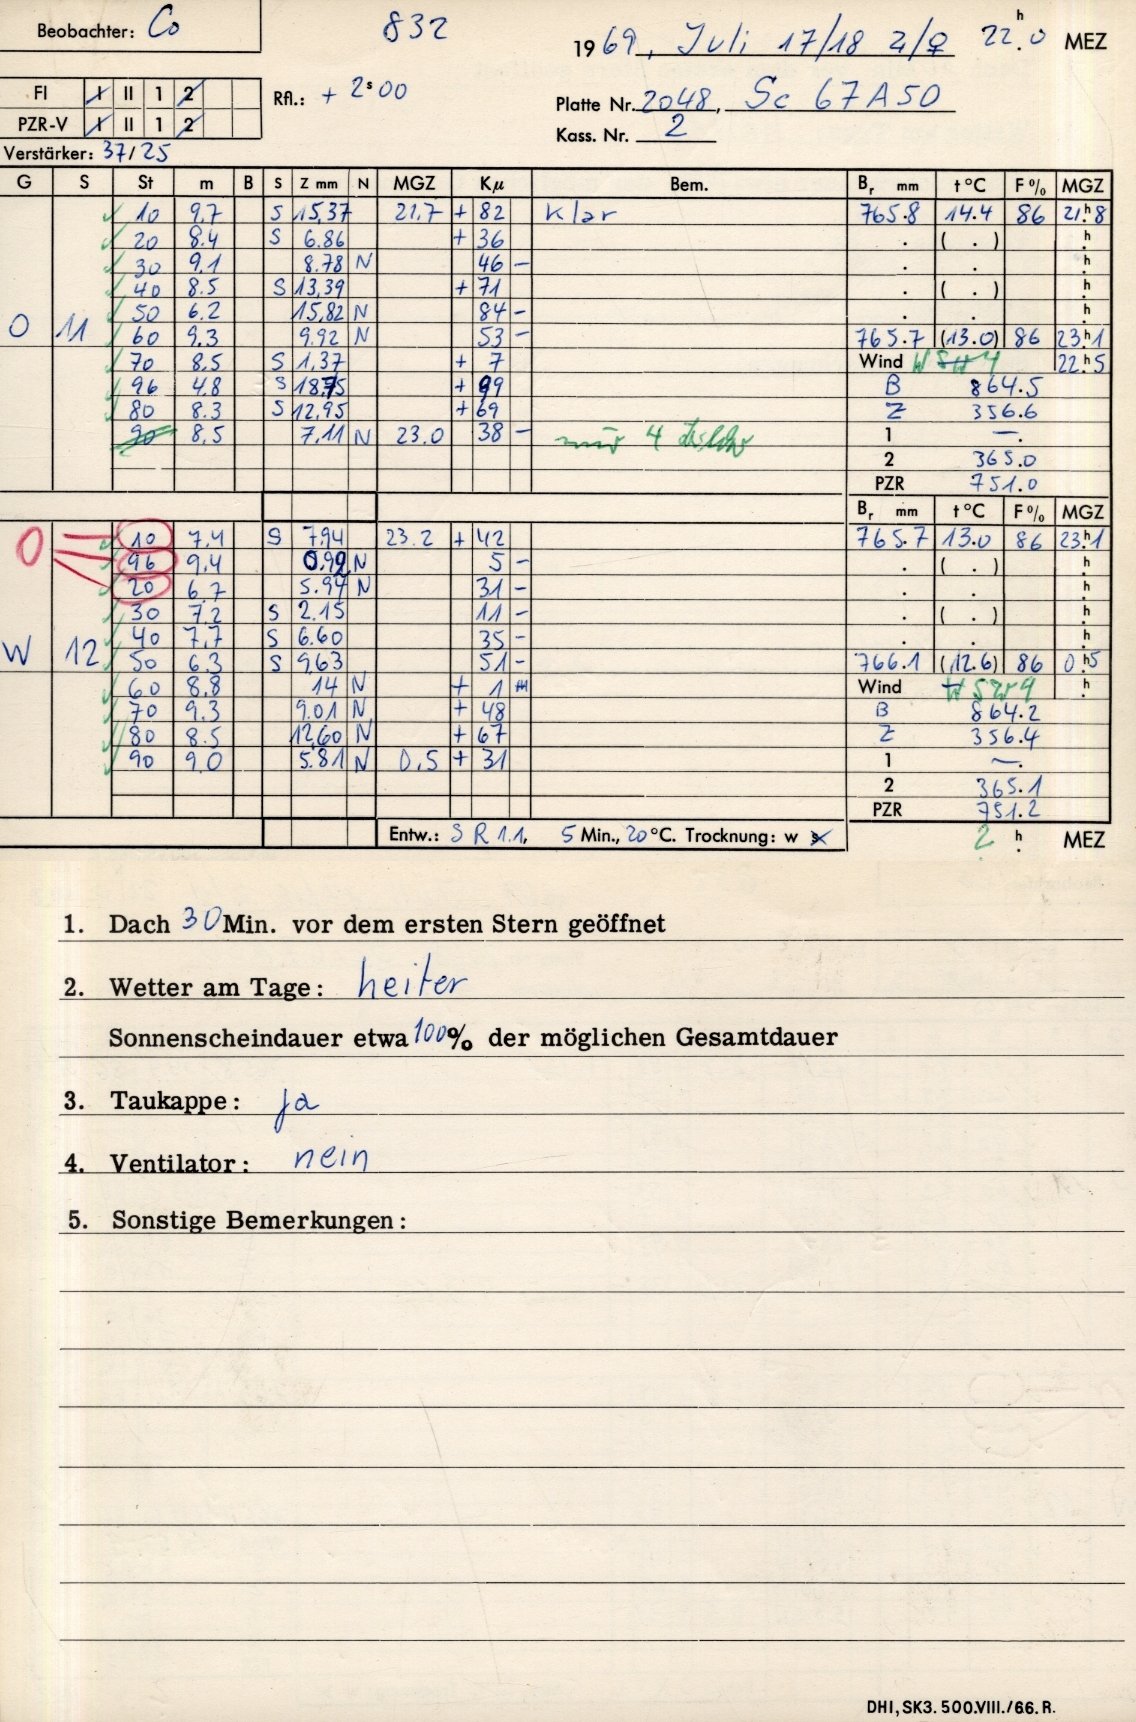 Beobachter: Co
832
1969, Juli 17/18 ♃/♀ 22.h0 MEZ
FI I II 1 2
PZR-V I II 1 2
Rfl.: + 2s00
Platte Nr. 2048, Sc 67A50
Kass. Nr. 2
Verstärker: 37/25
G S St m B S Z mm N MGZ Kµ Bem. Br mm t °C F % MGZ
10 9.7 S 15,37 21,7 + 82 klar 765.8 14.4 86 21h8
20 8.4 S 6.86 + 36 . ( . ) h
30 9.1 8.78 N 46 - . . h
40 8.5 S 13,39 + 71 . ( . ) h
50 6.2 15,82 N 84 - . . h
O 11 60 9.3 9.92 N 53 - 765.7 (13.0) 86 23h1
70 8,5 S 1,37 + 7 Wind WSW 4 22h5
96 4.8 S 18,75 + 99 B 864.5
80 8.3 S 12,95 + 69 Z 356.6
90 8,5 7,11 N 23.0 38 - nur 4 1 —.
2 365.0
PZR 751.0
Br mm t °C F % MGZ
O 10 7,4 S 7,94 23.2 + 42 765.7 13.0 86 23h1
96 9,4 0,92 N 5 - . ( . ) h
20 6.7 5.94 N 31 - . . h
30 7,2 S 2.15 11 - . ( . ) h
40 7,7 S 6.60 35 - . . h
W 12 50 6.3 S 9,63 51 - 766.1 (12.6) 86 0h5
60 8,8 14 N + 1 Wind WSW 4 h
70 9.3 9.01 N + 48 B 864.2
80 8.5 12,60 N + 67 Z 356.4
90 9.0 5.81 N 0,5 + 31 1 —.
2 365.1
PZR 751.2
Entw.: S R 1.1, 5 Min., 20 °C. Trocknung: w s 2 h MEZ
1. Dach 30 Min. vor dem ersten Stern geöffnet
2. Wetter am Tage: heiter
Sonnenscheindauer etwa 100% der möglichen Gesamtdauer
3. Taukappe: ja
4. Ventilator: nein
5. Sonstige Bemerkungen:
DHI, SK3. 500.VIII./66. R.